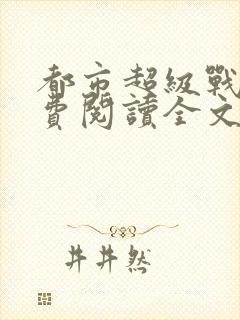 都市超級戰
費閱讀全文
井井然